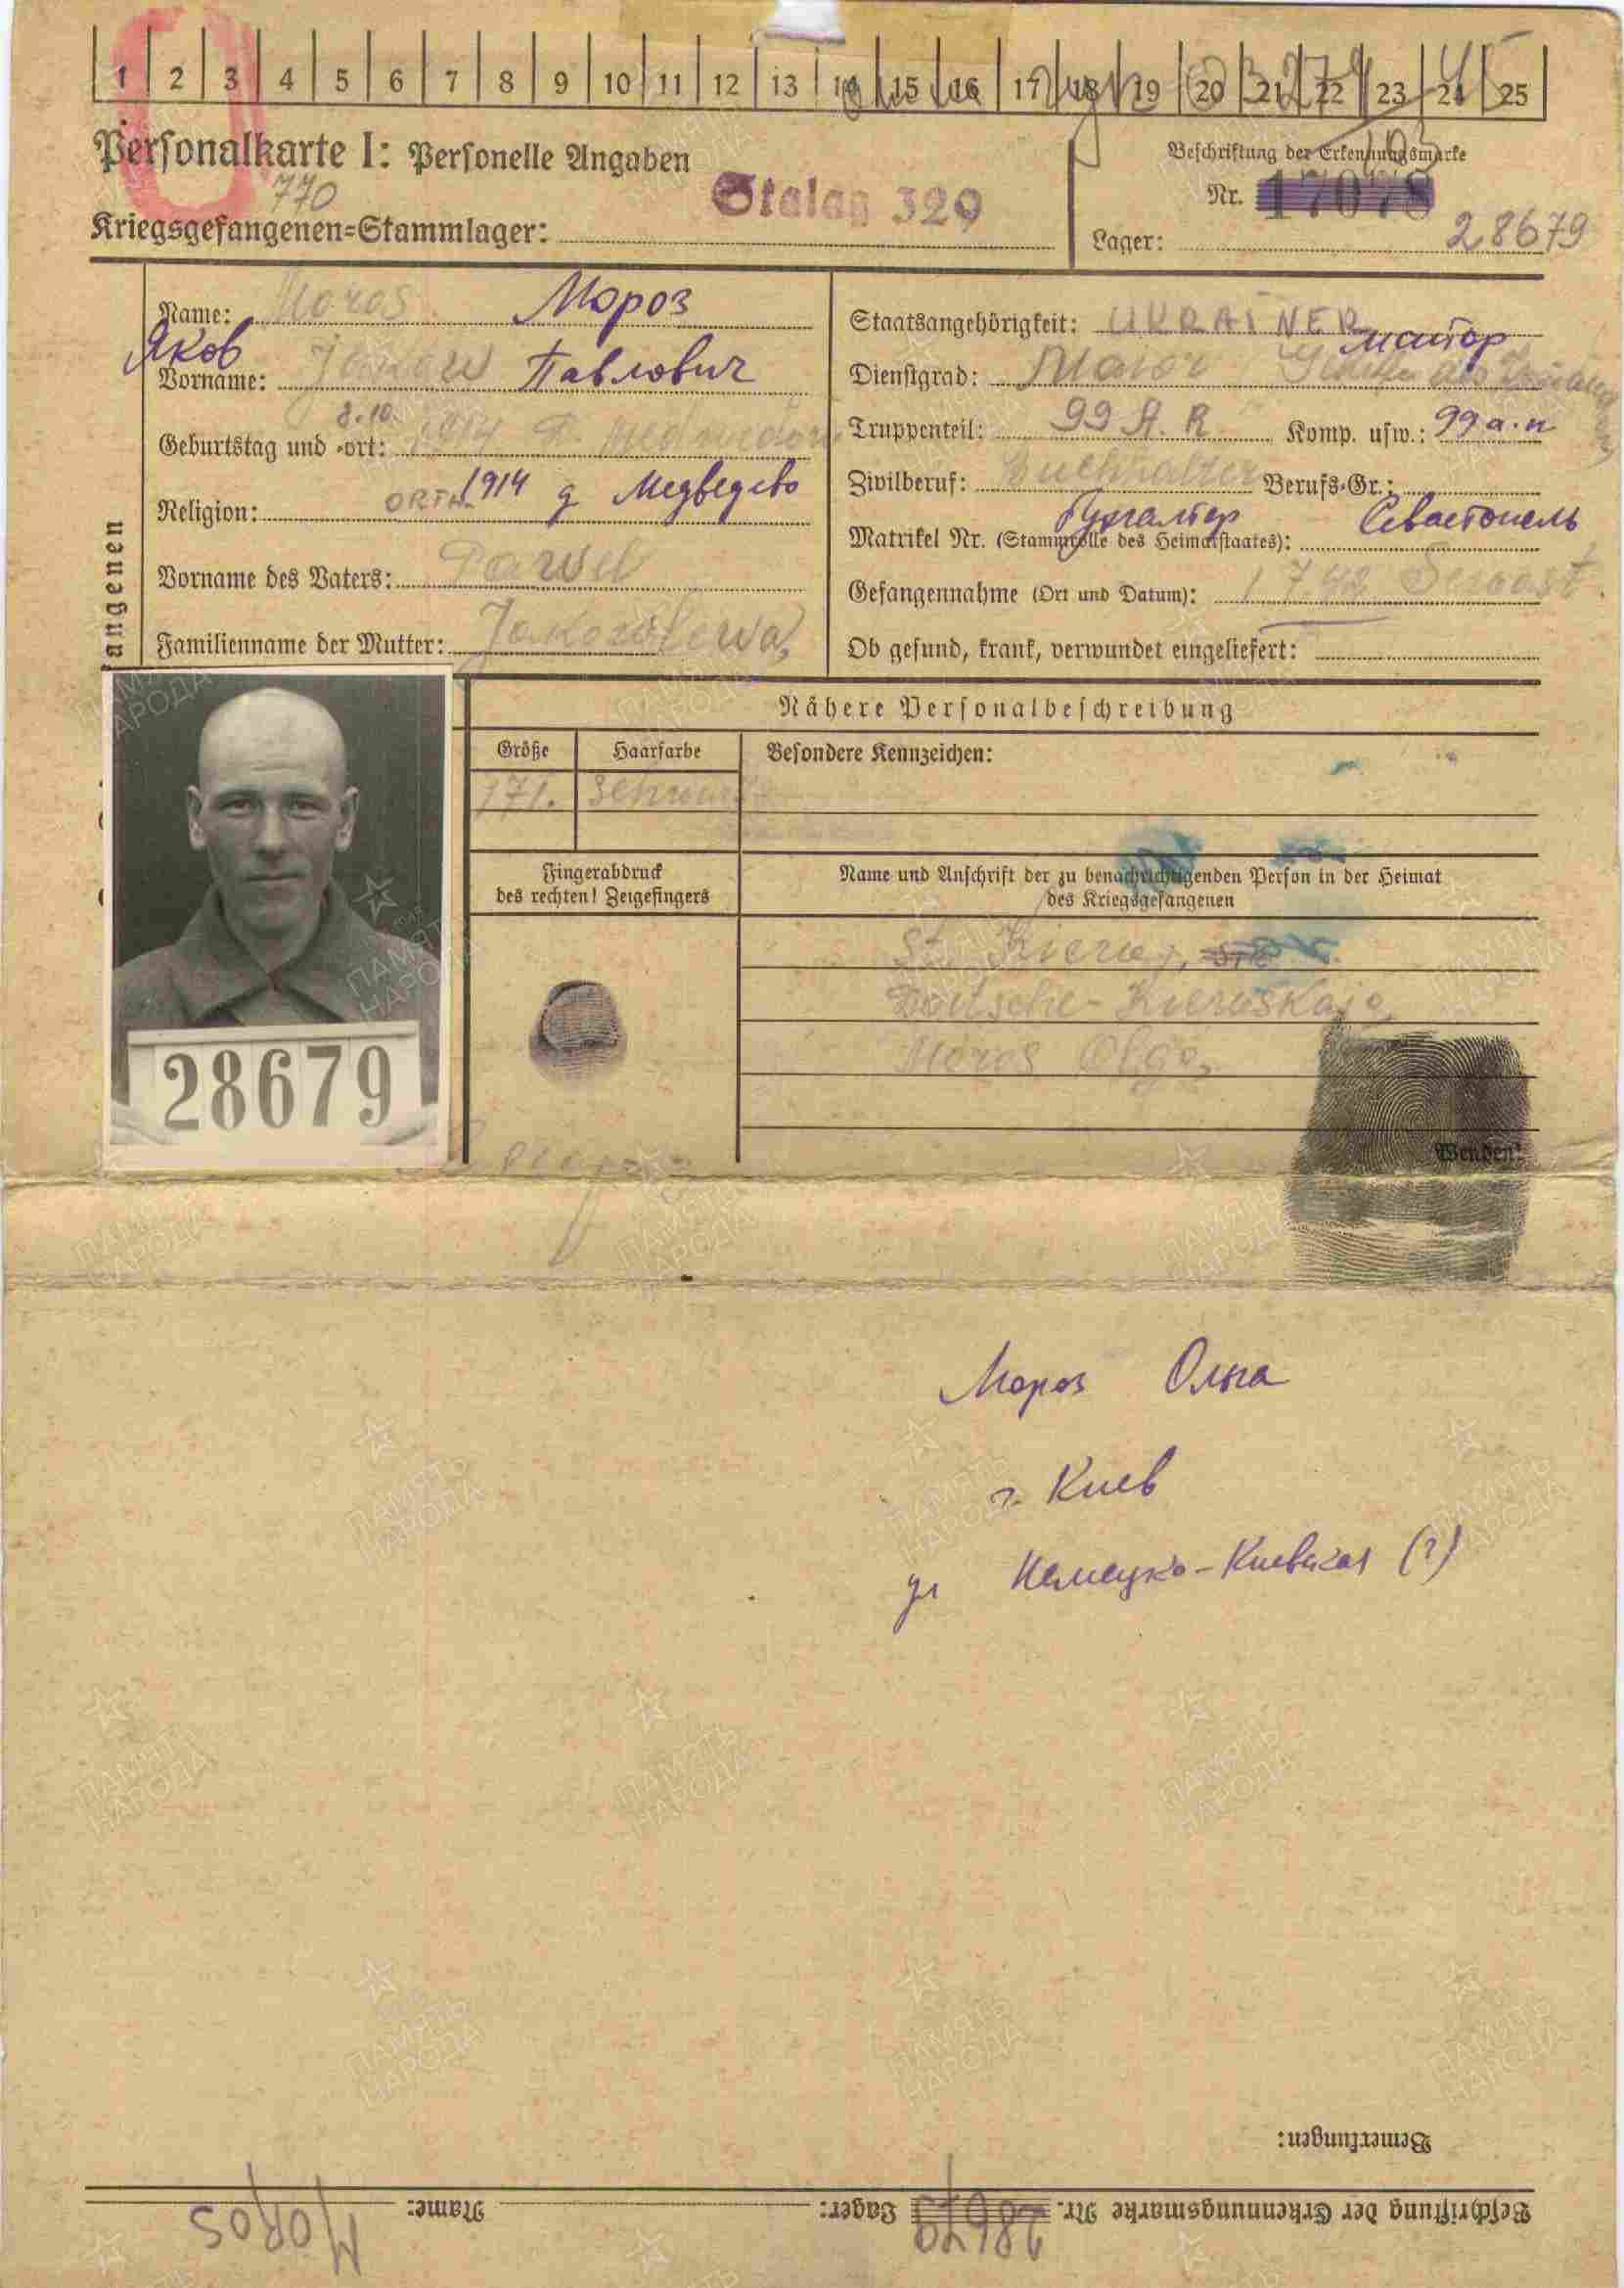 1 2 3 4 5 6 7 8 9 10 11 12 13 14 15 16 17 18 19 20 21 22 23 24 25
Personalkarte I: Personelle Angaben
Beschriftung der Erkennungsmarke
770
Stalag 329
Nr. 17078
Kriegsgefangenen=Stammlager:
Lager: 28679
Name: Moros Мороз
Яков
Vorname: Jakow Павлович
8.10.
Geburtstag und =ort: 1914 D.
1914 д Медведево
Religion: ORTH.
Vorname des Vaters: Pawel
Familienname der Mutter:
Staatsangehörigkeit: UKRAINER
майор
Dienstgrad: Maior
Truppenteil: 99 A. R Komp. usw.: 99 а.п
Zivilberuf: Buchhalter Berufs=Gr.:
Бухгалтер Севастополь
Matrikel Nr. (Stammrolle des Heimatstaates):
Gefangennahme (Ort und Datum): 1 7.42 Sewast.
Ob gesund, krank, verwundet eingeliefert:
angenen
Nähere Personalbeschreibung
Größe Haarfarbe Besondere Kennzeichen:
171. Schwarz
Fingerabdruck
des rechten! Zeigefingers
Name und Anschrift der zu benachrichtigenden Person in der Heimat
des Kriegsgefangenen
St. Kiew,
Doitsche-Kiewskaja
Moros Olga
28679
Wenden!
Мороз Ольга
г. Киев
ул Немецко-Киевская (?)
Bemerkungen:
Beschriftung der Erkennungsmarke Nr. 28679 Lager: Name: MOROS